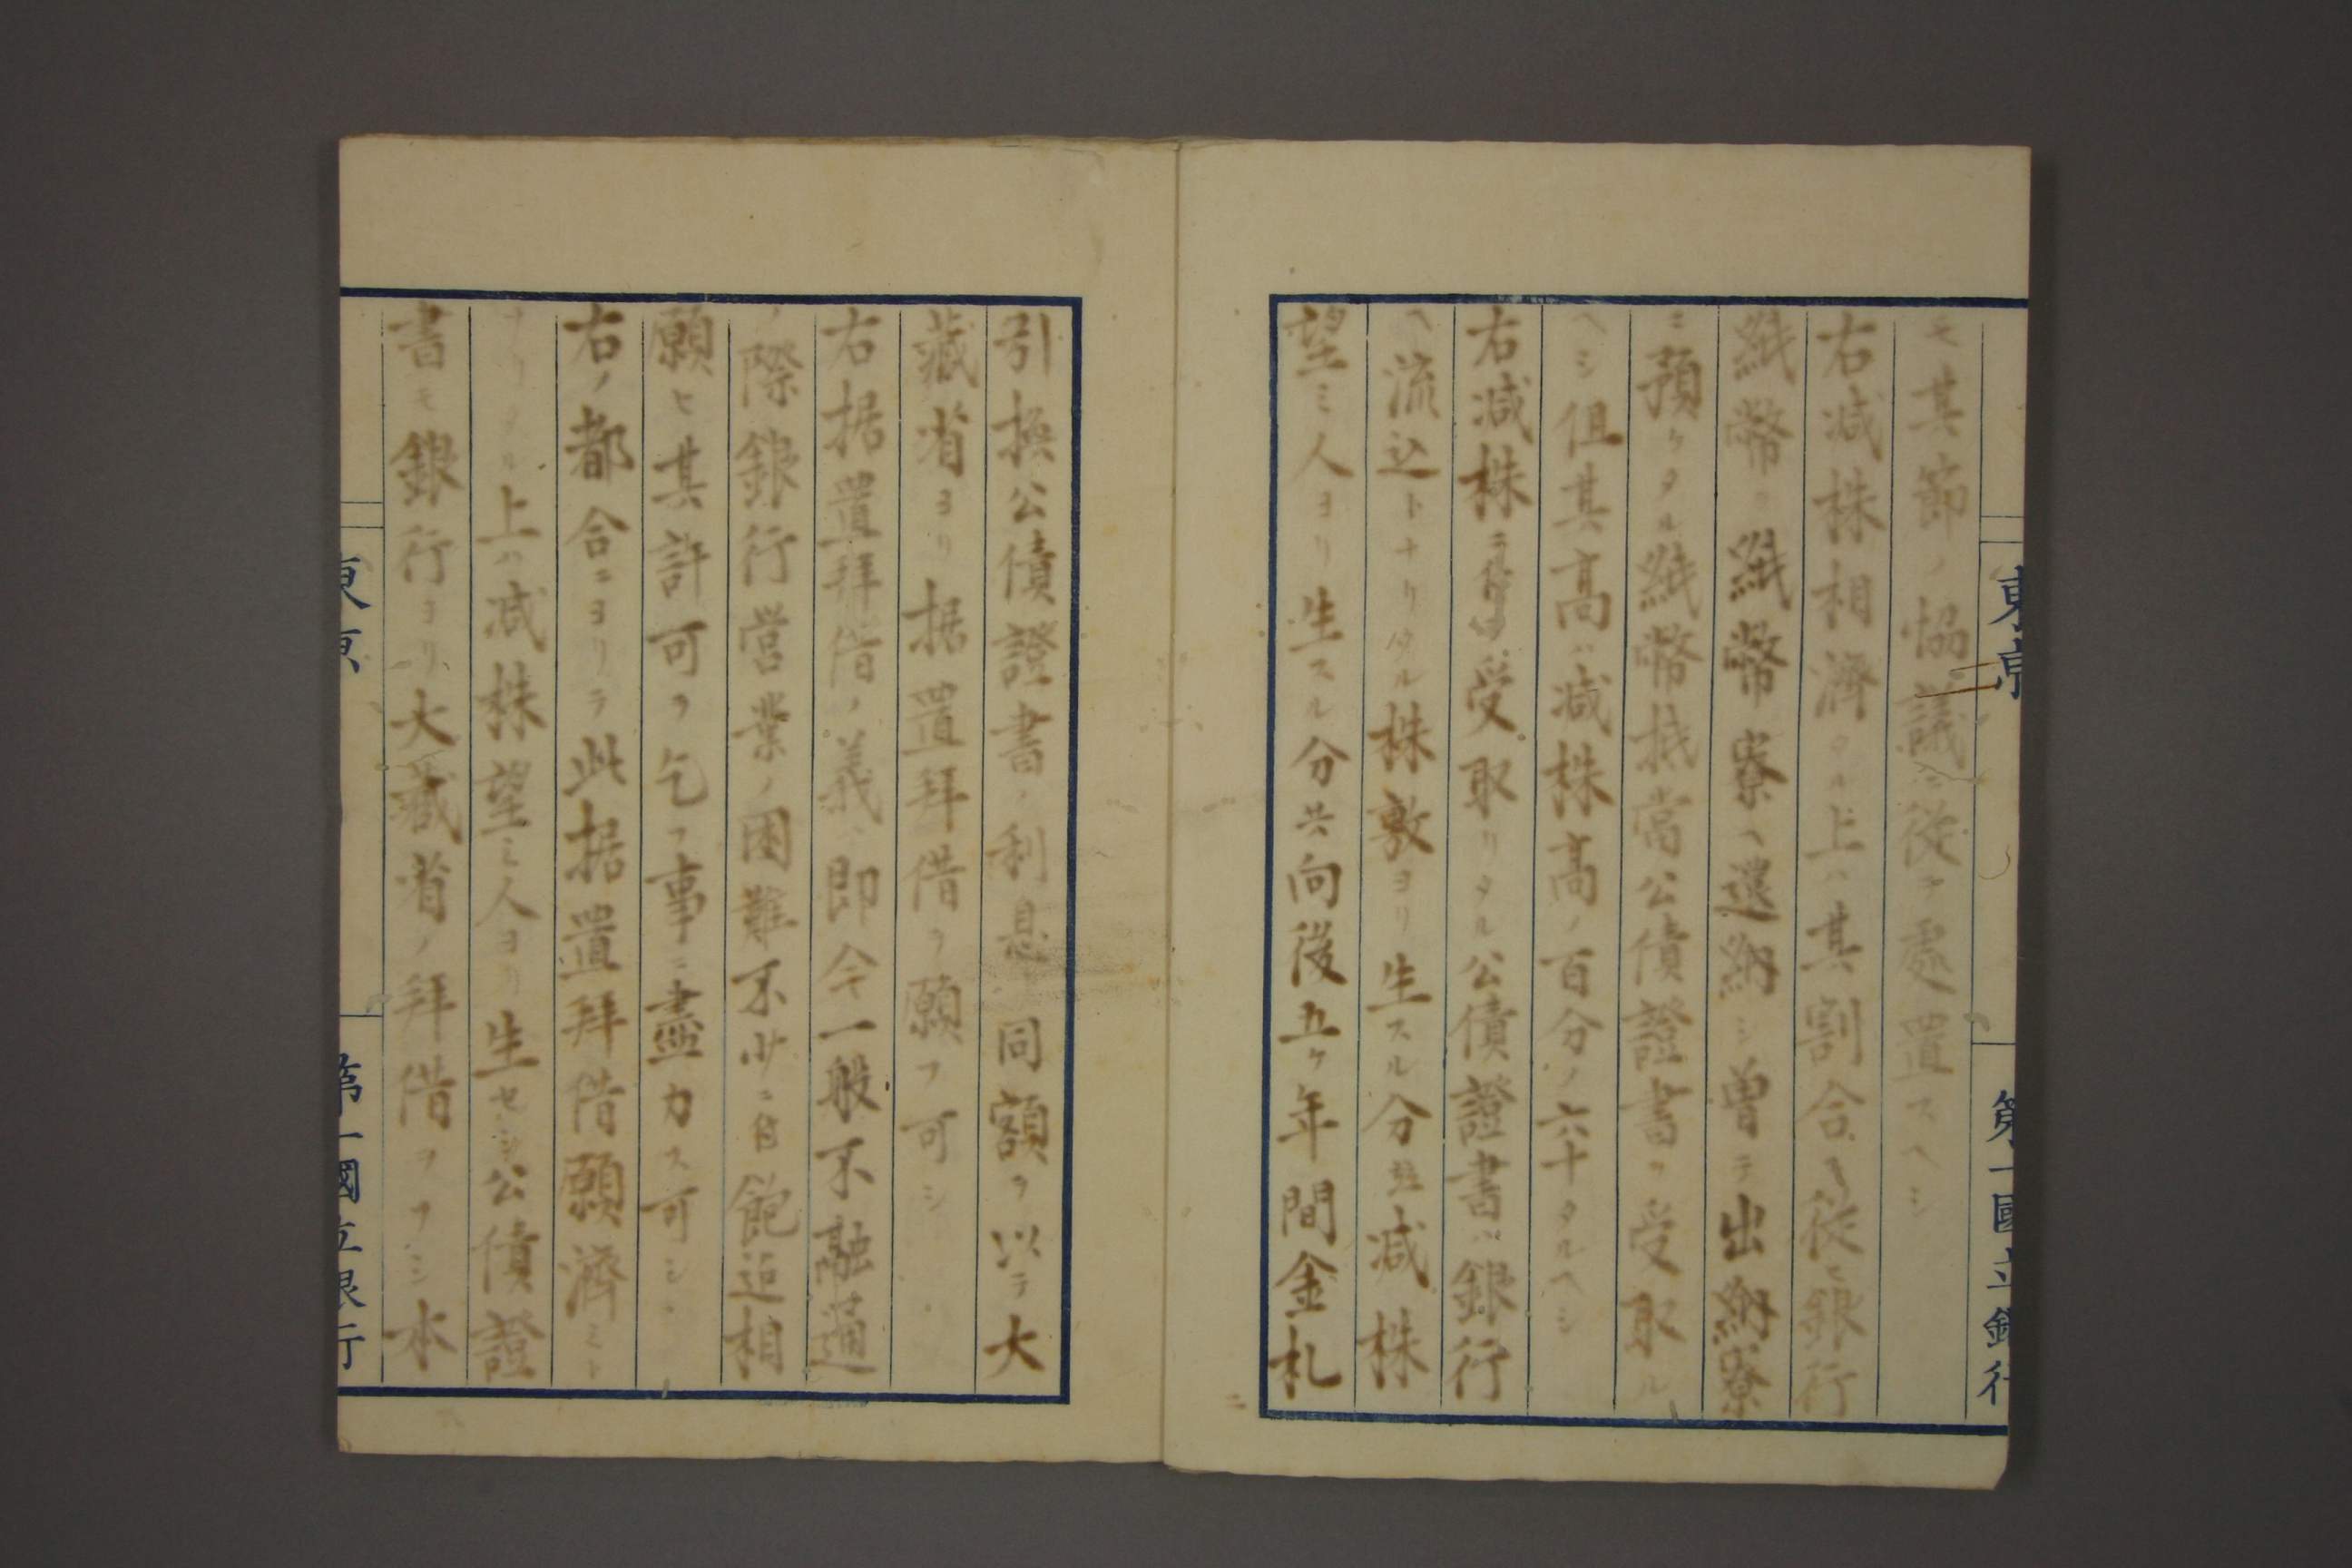 東京 第一國立銀行
モ其節ノ恊議ニ從テ處置スヘシ
右减株相濟タル上ハ其割合ヲ從ヒ銀行
紙幣ヲ紙幣寮ヘ還納シ曽テ出納寮
ニ預ケタル紙幣抵當公債證書ヲ受取ル
ヘシ但其高ハ减株高ノ百分ノ六十タルヘシ
右减株ニ付受取リタル公債證書ハ銀行
ヘ流込トナリタル株敷ヨリ生スル分並减株
望ミ人ヨリ生スル分共向後五ケ年間金札
引換公債證書ノ利息同額ヲ以テ大
藏省ヨリ据置拜借ヲ願フ可シ
右据置拜借ノ義ハ即今一般不融通
ノ際銀行營業ノ困難不少ニ付飽迠相
願ヒ其許可ヲ乞フ事ニ盡力ス可シ
右ノ都合ニヨリテ此据置拜借願濟ミト
ナリタル上ハ减株望ミ人ヨリ生セシ公債證
書モ銀行ヨリ大藏省ノ拜借ヲフシ本
東京 第一國立銀行